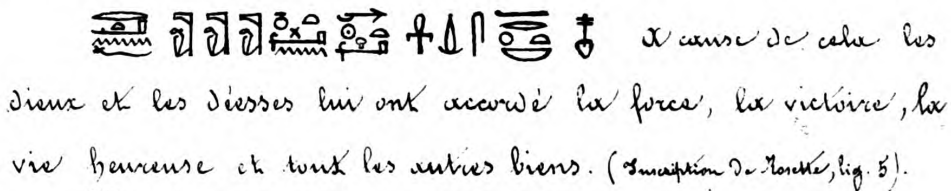 𓋹𓍑𓋴 𓄤 À cause de cela les
dieux et les déesses lui ont accordé la force, la victoire, la
vie heureuse et tout les autres biens. (Inscription de Rosette, lig. 5).